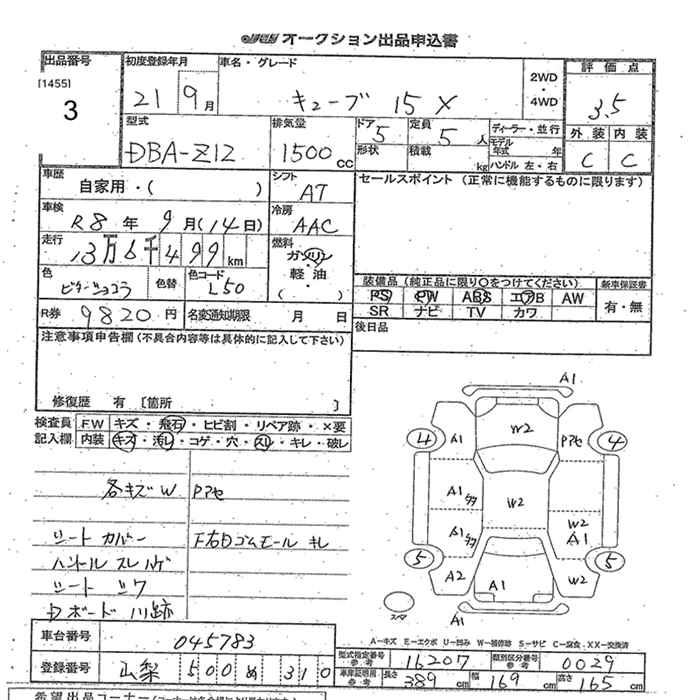 オークション出品申込書
出品番号 [1455] 3
初度登録年月 21 9月
車名・グレード キューブ 15 X
2WD・4WD
評価点 3.5
外装 C 内装 C
型式 DBA-Z12
排気量 1500cc
ドア 5 形状
定員 5人 積載 kg
ディーラー・並行
モデル年式 年
ハンドル 左・右
車歴 自家用・( )
シフト AT
セールスポイント (正常に機能するものに限ります)
車検 R8年 9月(14日)
冷房 AAC
走行 13万6千499km
燃料 ガソリン・軽油・( )
色 ビターショコラ 色替
色コード L50
装備品 (純正品に限り○をつけてください) 新車保証書
PS PW ABS エアB AW 有・無
SR ナビ TV カワ
R券 9820円
名変通知期限 月 日
後日品
注意事項申告欄 (不具合内容等は具体的に記入して下さい)
修復歴 有 [箇所 ]
検査員記入欄
F.W キズ・飛石・ヒビ割・リペア跡・×要
内装 キズ・汚れ・コゲ・穴・スレ・キレ・破レ
各キズW Pアセ
シートカバー 下右Dゴムモール キレ
ハンドルスレハゲ
シート シワ
Dボード 川跡
A1
4 A1 W2 Pアセ 4
A1 タタ W2
A1 タタ W2 A1
5 A2 A1 W2 5
スペア A1
A-キズ E-エクボ U-凹み W-補修跡 S-サビ C-腐食 XX-交換済
車台番号 045783
登録番号 山梨 500 め 310
型式指定番号 参考 16207
類別区分番号 参考 0029
車庫証明用 参考 長さ 389cm 幅 169cm 高さ 165cm
希望出品コーナー